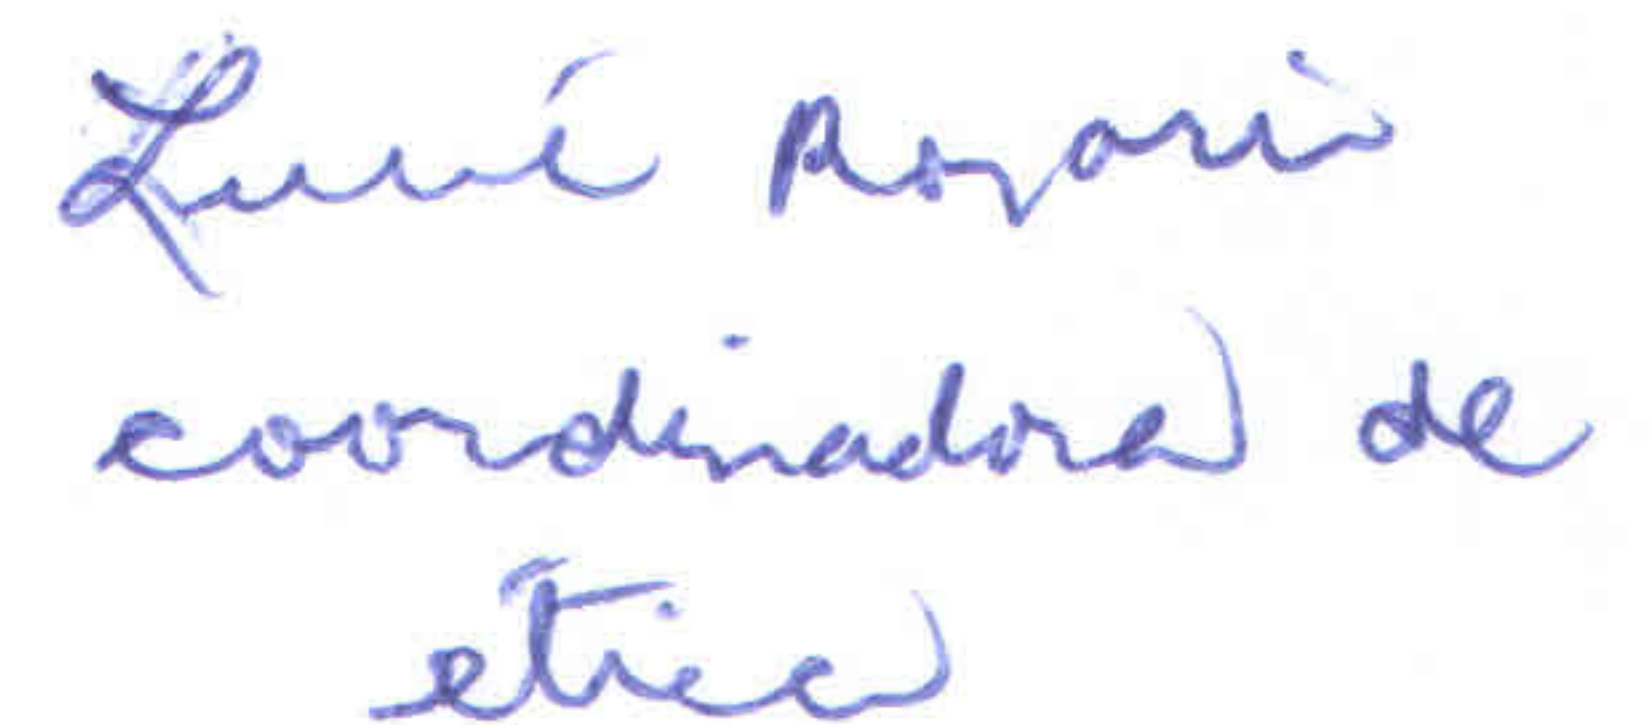 Rosario
coordinadora de
ética